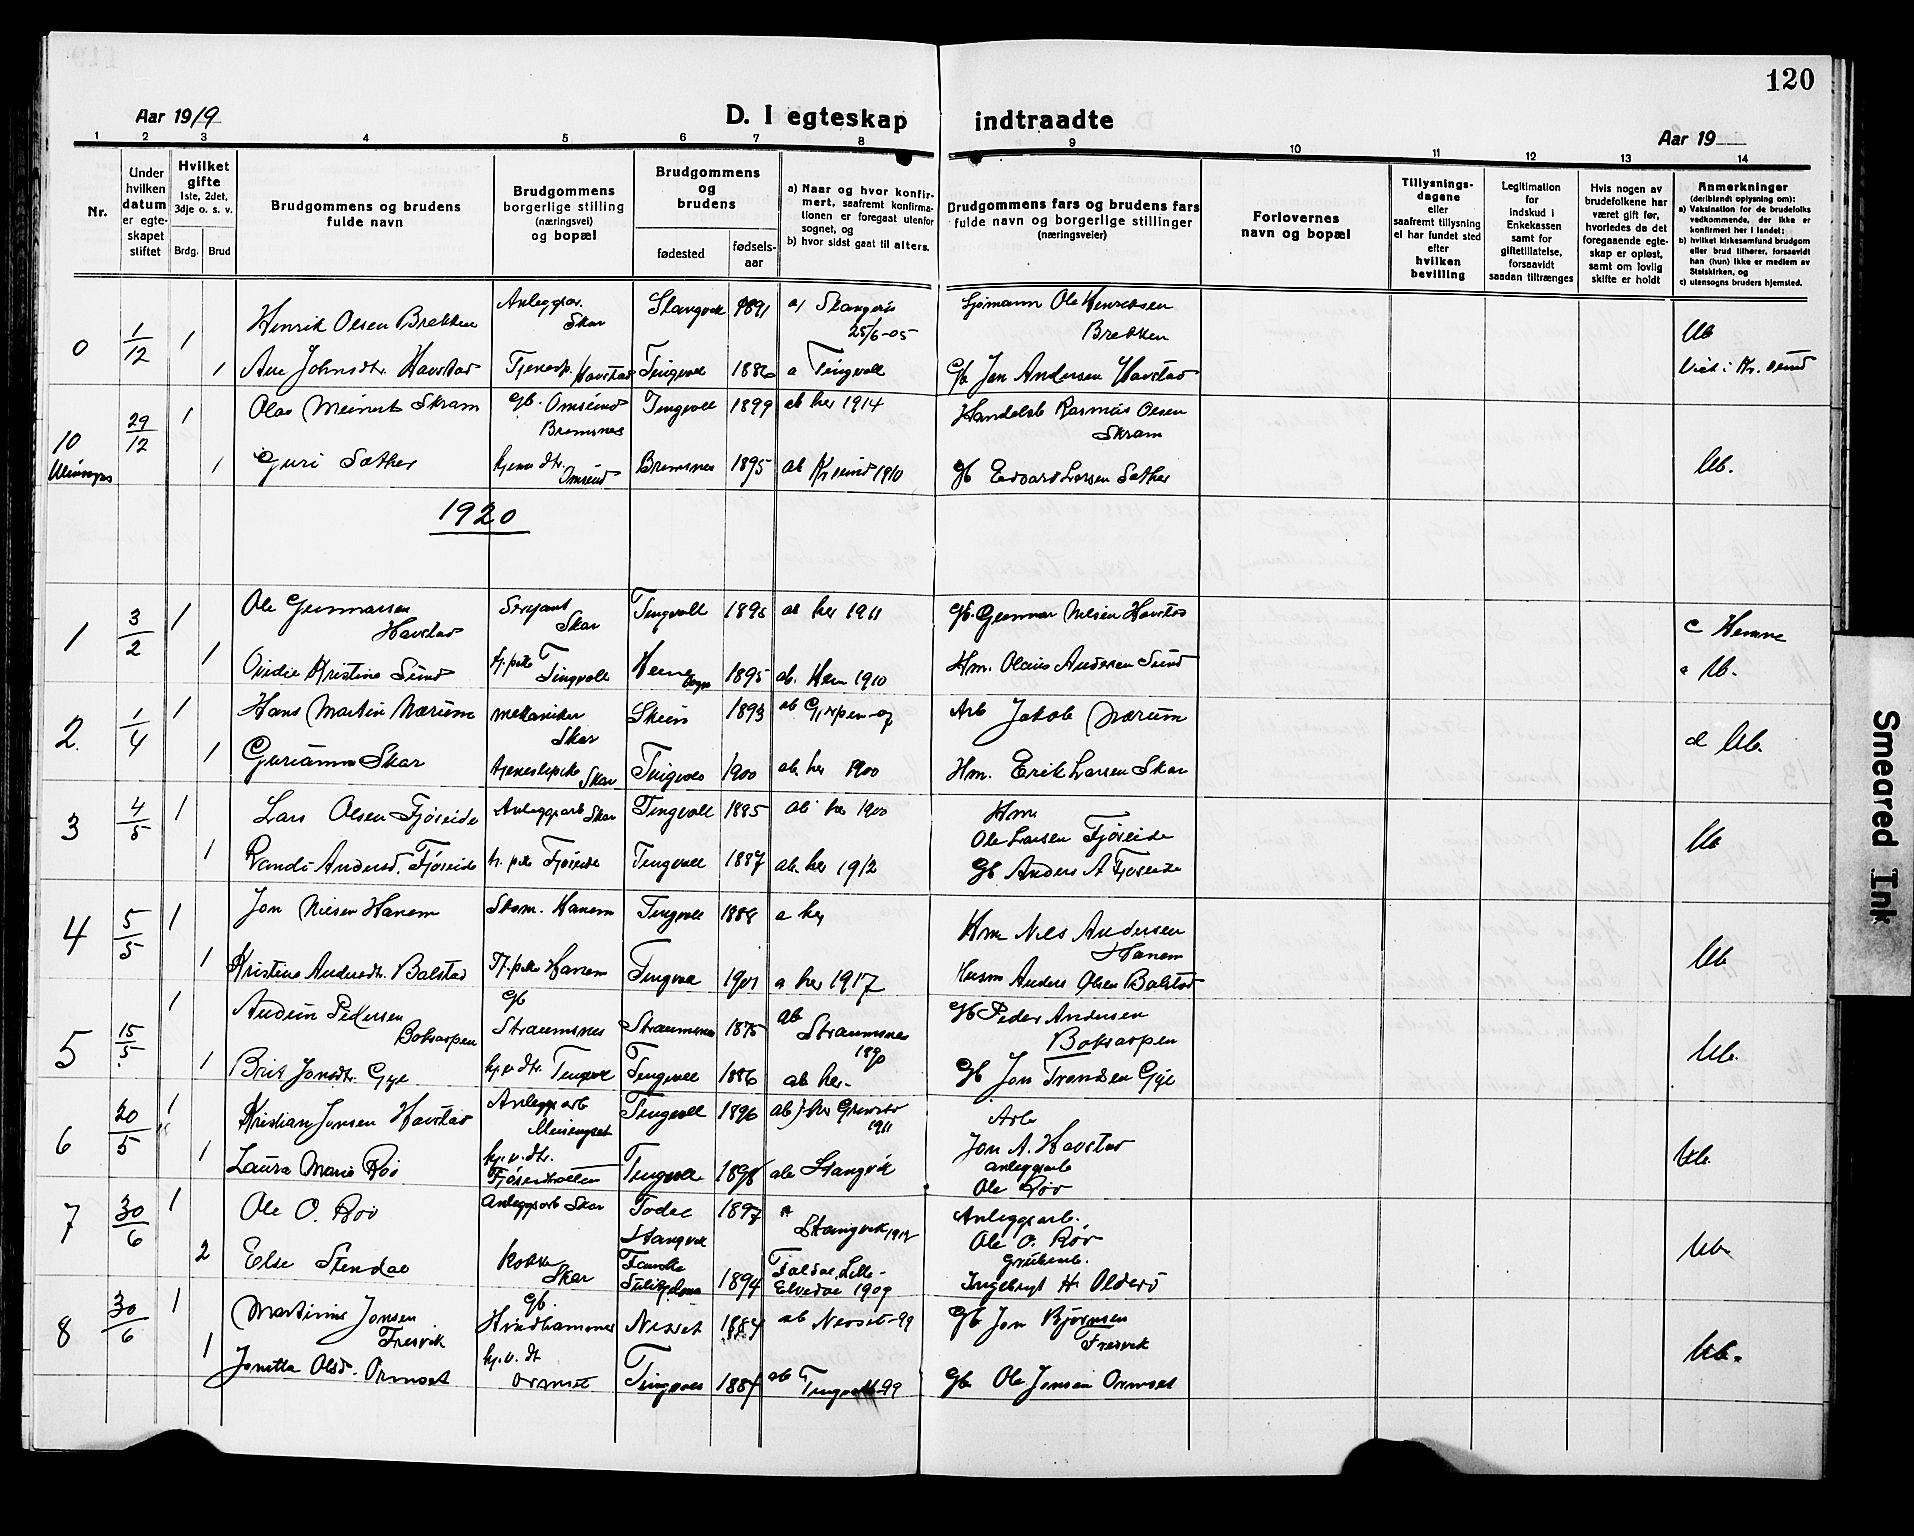 120
Aar 1919
D. I egteskap indtraadte
Aar 19
1 2 3 4 5 6 7 8 9 10 11 12 13 14
Nr.
Under hvilken datum er egteskapet stiftet
Hvilket gifte 1ste, 2det, 3dje o. s. v.
Brdg. Brud
Brudgommens og brudens fulde navn
Brudgommens borgerlige stilling (næringsvei) og bopæl
Brudgommens og brudens
fødested
fødsels-aar
a) Naar og hvor konfirmert, saafremt konfirmationen er foregaat utenfor sognet, og
b) hvor sidst gaat til alters.
Brudgommens fars og brudens fars fulde navn og borgerlige stillinger (næringsveier)
Forlovernes navn og bopæl
Tillysnings-dagene eller saafremt tillysning ei har fundet sted efter hvilken bevilling
Legitimation for indskud i Enkekassen samt for giftetillatelse, forsaavidt saadan tiltrænges
Hvis nogen av brudefolkene har været gift før, hvorledes da det foregaaende egteskap er opløst, samt om lovlig skifte er holdt
Anmerkninger (deriblandt oplysning om):
a) Vaksination for de brudefolks vedkommende, der ikke er konfirmert her i landet;
b) hvilket kirkesamfund brudgom eller brud tilhører, forsaavidt han (hun) ikke er medlem av Statskirken, og
c) utensogns bruders hjemsted.
0 1/12 1 Henrik Olsen Brekken Anleggsar. Skar Stangvik 1891 a) Stangvik 25/6-05 Sjømann Ole Henriksen Brekken Ub
1 Ane Johnsdtr. Havstad Tjenesp. Havstad Tingvoll 1886 a Tingvoll Gb Jon Andersen Havstad Viet i Kr. sund
10 29/12 1 Olav Meinert Skram Gb. Omsund Bremsnes Tingvoll 1899 ab her 1914 Handelsb Rasmus Olsen Skram
1 Guri Sather hjemv dtr. Omsund Bremsnes 1895 ab Kr sund 1910 Gb Edvard Larsen Sather Ub.
1920
1 3/2 1 Ole Gunnarsen Havstad Sersjant Skar Tingvoll 1895 ab her 1911 Gb. Gunnar Nilsen Havstad c Hemne
1 Ovidie Kristine Sund tj. pike Tingvoll Hemne sogn 1895 ab. Hem 1910 Hm. Olaus Andersen Sund a Ub.
2. 1/4 1 Hans Martin Nærum mekaniker Skar Skien 1893 ab Gjerpen-07 Arb Jakob Nærum
1 Gurianna Skar tjenestepike Skar Tingvoll 1900 ab. her 1900 Hm. Erik Larsen Skar d Ub.
3 4/5 1 Lars Olsen Fjøseide Anleggsarb Skar Tingvoll 1885 ab her 1900 Hm. Ole Larsen Fjøseide Ub
1 Randi Andersd. Fjøseide tj. pike Fjøseide Tingvoll 1887 ab. her 1912 Gb Anders A Fjøseide
4 5/5 1 Jon Nilsen Hanem Skom. Hanem Tingvoll 1888 a her Hm Nils Andersen Hanem
1 Kristine Andersdtr. Balstad Tj. pike Hanem Tingvoll 1901 a her 1917 Husm Anders Olsen Balstad Ub
5 15/5. 1 Audun Pedersen Boksaspen Gb Straumsnes Straumsnes 1875 ab Straumsnes 1890 Gb Peder Andersen Boksaspen
1 Brit Jonsdtr. Gyl hj. v. dtr. Tingvoll Tingvoll 1886 ab her- Gb Jon Trondsen Gyl Ub.
6 20/5 1 Kristian Jonsen Havstad Anleggsarb Meisingset Tingvoll 1896 1911 Arb Jon A. Havstad
1 Laura Marie Røv hj. v. dtr. Tingvoll 1898 ab Stangvik anleggsarb Ole Røv Ub.
7 30/6 1 Ole O. Røv Anleggsarb Skar Todal Stangvik 1897 a Stangvik 1912 Anleggsarb. Ole O. Røv
2 Else Stendal Kokke Skar Fauske Sulitjelma 1894 Foldal, Lille-Elvedal 1909 Grubearb. Ingebrigt H. Olderø Ub.
8 30/6 1 Martinus Jonsen Fresvik Gb. Hvidhammer Nesset 1884 ab Nesset-99 Gb Jon Bjørnsen Fresvik
1 Jonetta Olsd. Ormset hj. v. dt Ormset Tingvoll 1884 ab Tingvoll-99 Gb Ole Jonsen Ormset Ub.
Smeared Ink